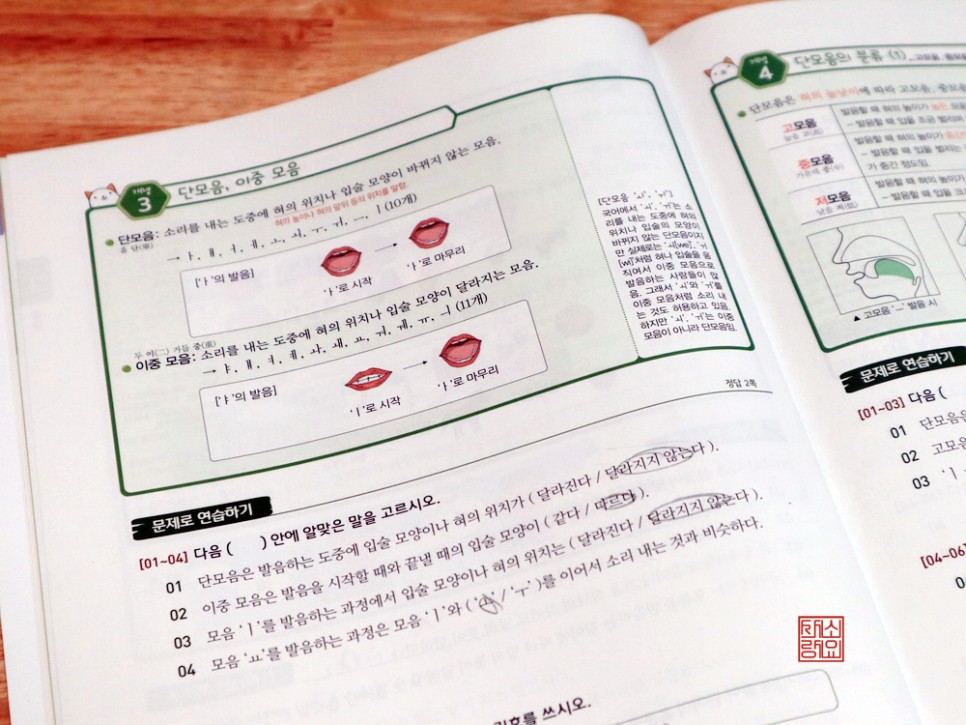 개념
3
단모음, 이중 모음
단모음: 소리를 내는 도중에 혀의 위치나 입술 모양이 바뀌지 않는 모음.
홑 단(單)
혀의 높이나 혀의 앞뒤 등의 위치를 말함.
→ ㅏ, ㅐ, ㅓ, ㅔ, ㅗ, ㅚ, ㅜ, ㅟ, ㅡ, ㅣ (10개)
['ㅏ'의 발음]
'ㅏ'로 시작
'ㅏ'로 마무리
두 이(二) 거듭 중(重)
이중 모음: 소리를 내는 도중에 혀의 위치나 입술 모양이 달라지는 모음.
→ ㅑ, ㅒ, ㅕ, ㅖ, ㅘ, ㅙ, ㅛ, ㅝ, ㅞ, ㅠ, ㅢ (11개)
['ㅑ'의 발음]
'ㅣ'로 시작
'ㅏ'로 마무리
[단모음 'ㅚ', 'ㅟ']
국어에서 'ㅚ', 'ㅟ'는 소
리를 내는 도중에 혀의
위치나 입술의 모양이
바뀌지 않는 단모음이지
만 실제로는 'ㅚ[we], ㅟ
[wi]'처럼 혀나 입술을 움
직여서 이중 모음으로
발음하는 사람들이 많
음. 그래서 'ㅚ'와 'ㅟ'를
이중 모음처럼 소리 내
는 것도 허용하고 있음.
하지만 'ㅚ', 'ㅟ'는 이중
모음이 아니라 단모음임.
정답 2쪽
문제로 연습하기
[01~04] 다음 ( ) 안에 알맞은 말을 고르시오.
01 단모음은 발음하는 도중에 입술 모양이나 혀의 위치가 ( 달라진다 / 달라지지 않는다 ).
02 이중 모음은 발음을 시작할 때와 끝낼 때의 입술 모양이 ( 같다 / 다르다 ).
03 모음 'ㅣ'를 발음하는 과정에서 입술 모양이나 혀의 위치는 ( 달라진다 / 달라지지 않는다 ).
04 모음 'ㅛ'를 발음하는 과정은 모음 'ㅣ'와 ( 'ㅗ' / 'ㅜ' )를 이어서 소리 내는 것과 비슷하다.
쓰시오.
개념
4
단모음의 분류 (1)
단모음은 혀의 높낮이에 따라 고모음, 중모음
고모음
높을 고(高)
발음할 때 혀의 높이가 높은 모음
– 발음할 때 입을 조금 벌리며
중모음
가운데 중(中)
발음할 때 혀의 높이가 중간
– 발음할 때 입을 벌리는
가 중간 정도임.
저모음
낮을 저(低)
발음할 때 혀의 높이가
– 발음할 때 입을 크
▲ 고모음 'ㅡ' 발음 시
문제로 연습하기
[01~03] 다음 (
01 단모음은
02 고모음
03 'ㅣ'
[04~06]